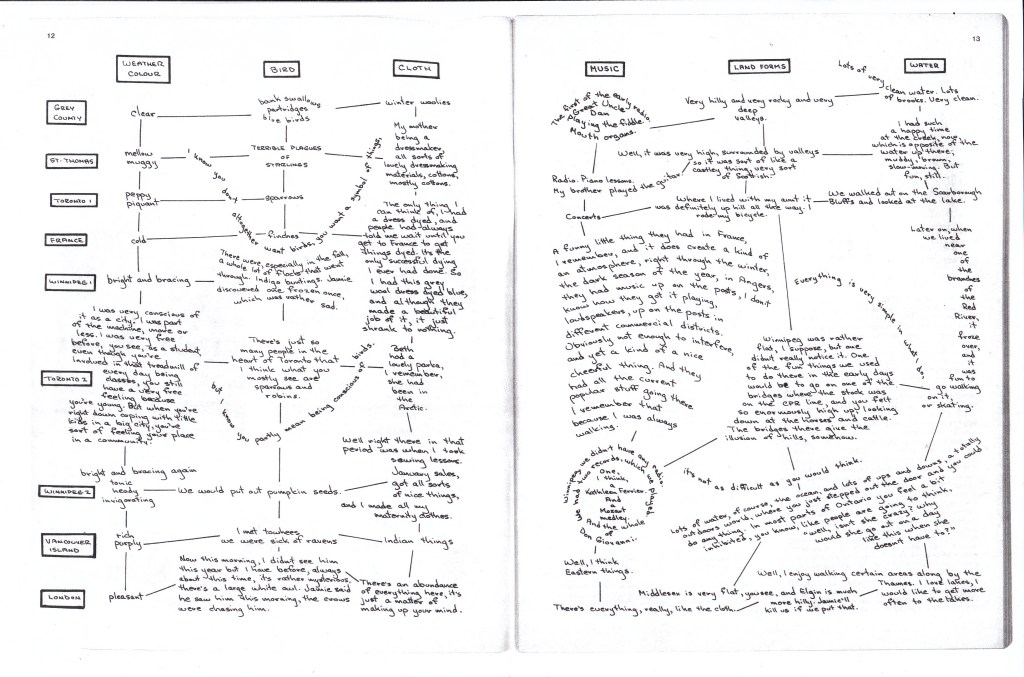 12
WEATHER
COLOUR
BIRD
CLOTH
GREY
COUNTY
clear
bank swallows
partridges
blue birds
winter woolies
ST. THOMAS
mellow
muggy
I know you don't altogether want birds, you want a symbol of things,
TERRIBLE PLAGUES
OF
STARLINGS
My mother
being a
dressmaker,
all sorts of
lovely dressmaking
materials, cottons,
mostly cottons.
TORONTO 1
peppy
piquant
sparrows
The only thing I
can think of, I had
a dress dyed, and
people had always
told me wait until you
get to France to get
things dyed. Its the
only successful dying
I ever had done. So
I had this grey
wool dress dyed blue,
and although they
made a beautiful
job of it, it just
shrank to nothing.
FRANCE
cold
finches
WINNIPEG 1
bright and bracing
There were, especially in the fall,
a whole lot of flocks that went
through. Indigo buntings. Jamie
discovered one frozen once,
which was rather
sad.
TORONTO 2
I was very conscious of
it as a city. I was part
of the machine, more or
less. I was very free
before, you see, as a student,
even though you're
involved in that treadmill of
every day being
classes, you still
have a very free
feeling because
you're young. But when you're
right down coping with little
kids in a big city, you're
sort of feeling your place
in a community.
There's just so
many people in the
heart of Toronto that
I think what you
mostly see are
sparrows and
robins.
but I know you partly mean being conscious of birds.
Beth
had a
lovely parka,
I remember,
she had
been in
the
Arctic.
Well right there in that
period was when I took
sewing lessons.
WINNIPEG 2
bright and bracing again
tonic
heady
invigorating
We would put out pumpkin seeds.
January sales,
got all sorts
of nice things,
and I made all my
maternity clothes.
VANCOUVER
ISLAND
rich
purply
I met towhees
we were sick of ravens
Indian things
LONDON
pleasant
Now this morning, I didn't see him
this year but I have before, always
about this time, its rather mysterious,
there's a large white owl. Jamie said
he saw him this morning, the crows
were chasing him.
There's an abundance
of everything here, it's
just a matter of
making up your mind.
13
MUSIC
LAND FORMS
WATER
The first of the early radio.
Great Uncle
Dan
playing the fiddle.
Mouth organs.
Very hilly and very rocky and very
deep
valleys.
Lots of very clean water. Lots
of brooks. Very clean.
Radio. Piano lessons.
My brother played the guitar
Well, it was very high, surrounded by valleys
so it was sort of like a
castley thing, very sort
of Scottish.
I had such
a happy time
at the creek, now,
which is opposite of the
water up there,
muddy, brown,
slow-runnier. But
fun, still.
Concerts
Where I lived with my aunt it
was definitely up hill all the way. I
rode my bicycle.
We walked out on the Scarborough
Bluffs and looked at the lake.
A funny little thing they had in France,
I remember, and it does create a kind of
an atmosphere, right through the winter,
the dark season of the year, in Angers,
they had music up on the posts, I don't
know how they got it playing,
loudspeakers, up on the posts in
different commercial districts.
Obviously not enough to interfere,
and yet a kind of a nice
cheerful thing. And they
had all the current
popular stuff going there
I remember that
because I was always
walking.
Everything is very simple in what it is,
Later on, when
we lived
near
one
of
the
branches
of
the
Red
River,
it
froze
over,
and
it
was
fun to
go walking
on it,
or skating.
Winnipeg was rather
flat, I suppose, but one
didn't really notice it. One
of the fun things we used
to do there in the early days
would be to go on one of the
bridges where the stock was
on the CPR line, and you felt
so enormously high up looking
down at the horses and cattle.
The bridges there give the
illusion of hills, somehow.
Winnipeg, we didn't have any radio
we had two records, which we played
One,
I think,
a
Kathleen Ferrier.
And
a
Mozart
medley.
And the whole
of
Don Giovanni.
it's not as difficult as you would think.
Lots of water, of course, the ocean, and lots of ups and downs, a totally
outdoors world, where you just stepped out the door and you could
do anything. In most parts of Ontario you feel a bit
inhibited, you know, like people are going to think,
"well, isn't she crazy? Why
would she go out on a day
like this when she
doesn't have to?"
Well, I think
Eastern things.
There's everything, really, like the cloth.
Middlesex is very flat, you see, and Elgin is much
more hilly. Jamie'll
kill us if we put that.
Well, I enjoy walking certain areas along by the
Thames. I love lakes, I
would like to get more
often to the lakes.